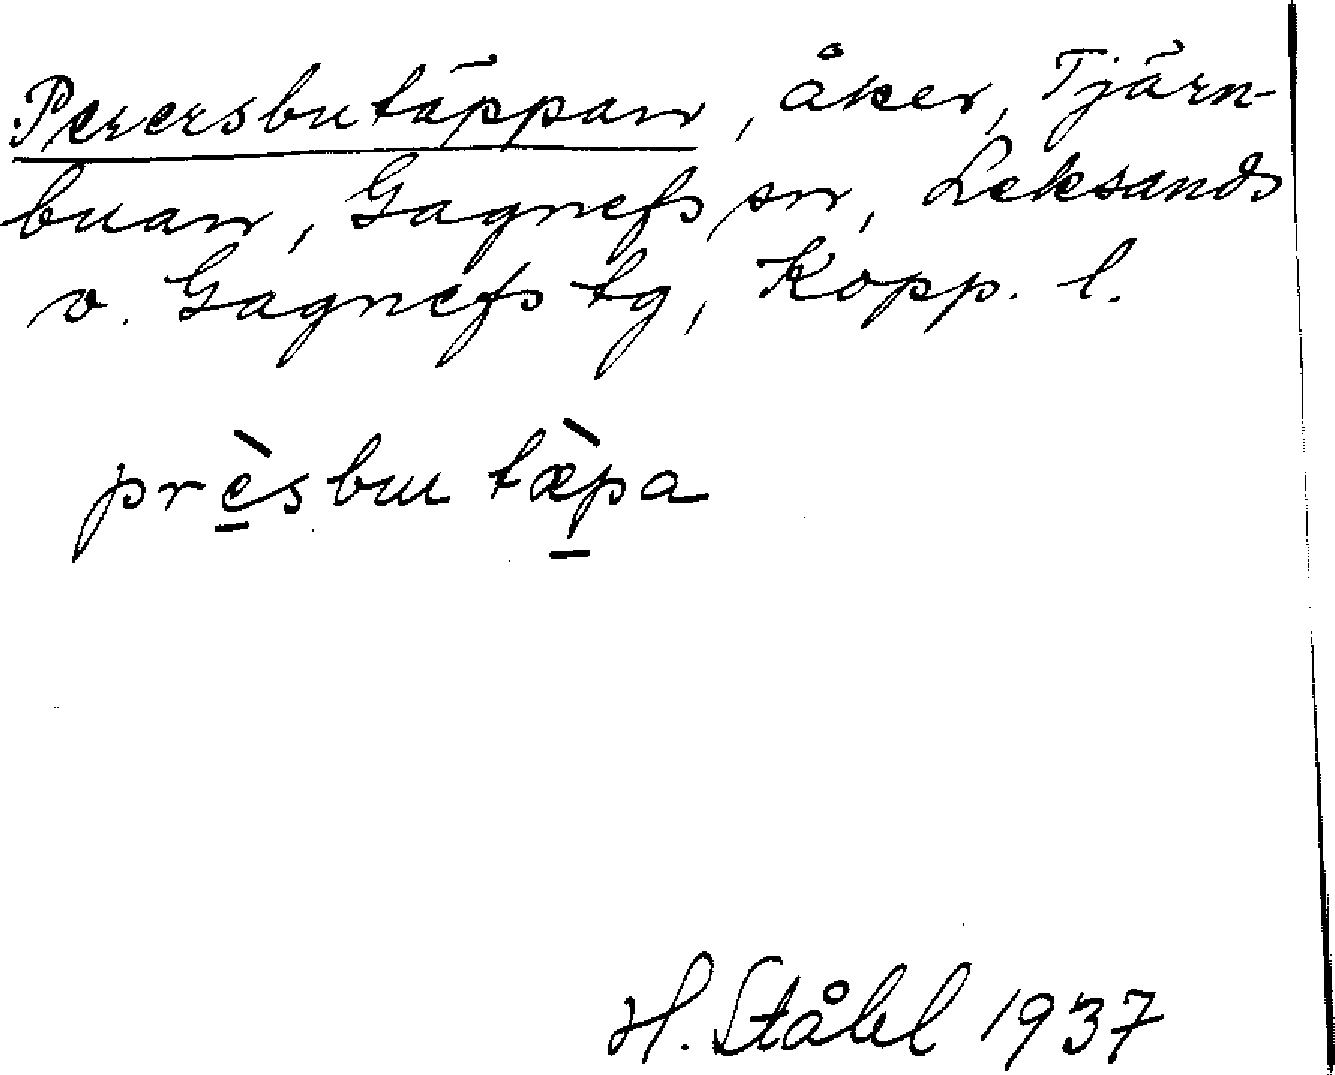 Perersbutäppan, åker, Tjärn-
buan, Gagnefs sn, Leksands
o. Gagnefs tg, Kopp. l.
prèsbu tæ̀pa
H. Ståhl 1937